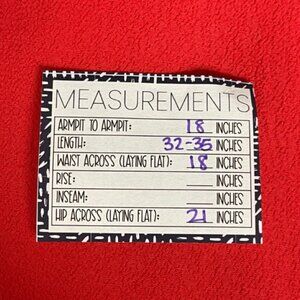 MEASUREMENTS
ARMPIT TO ARMPIT: 18 INCHES
LENGTH: 32-35 INCHES
WAIST ACROSS (LAYING FLAT): 18 INCHES
RISE: ___ INCHES
INSEAM: ___ INCHES
HIP ACROSS (LAYING FLAT): 21 INCHES